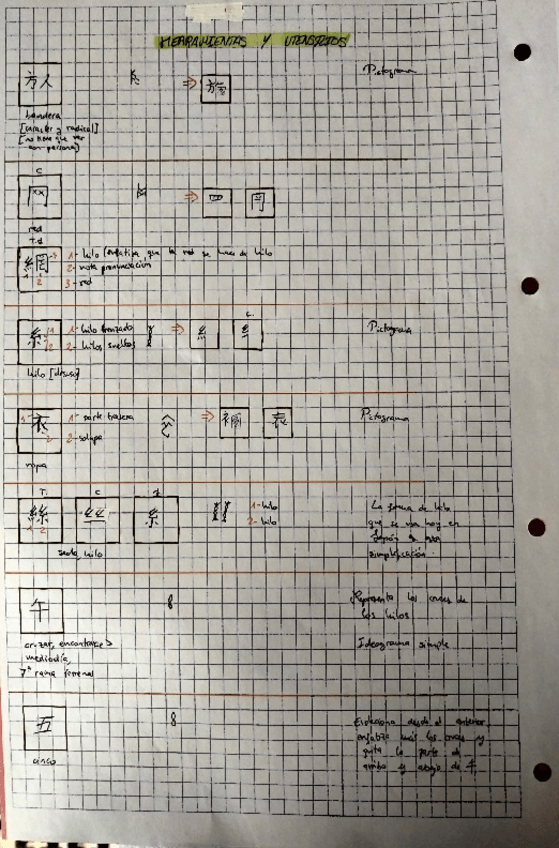 HERRAMIENTAS Y UTENSILIOS
方人 ⇒ Pictograma
bandera
[carácter y radical]
[no tiene que ver
con persona]
C
网 ⇒ 罒 冂
red
T.d
1- hilo (enfatiza que la red se hace de hilo
2- nota pronunciación
3- red
糸 1- hilo trenzado ⇒ 糹 纟 Pictograma
2- hilos sueltos
hilo [de seda]
衣 1- parte trasera ⇒ Pictograma
2- solapa
ropa
T. C J
絲 丝 糸 1- hilo
2- hilo
seda, hilo
La forma de hilo
que se usa hoy en
Japón es esta
simplificación.
午 8 Representa los cruces de
los hilos
cruzar, encontarse>
mediodía,
7ª rama terrenal
Ideograma simple
五 8
cinco
Evoluciona desde el anterior,
enfatiza más los cruces y
quita la parte de
arriba y abajo de 午